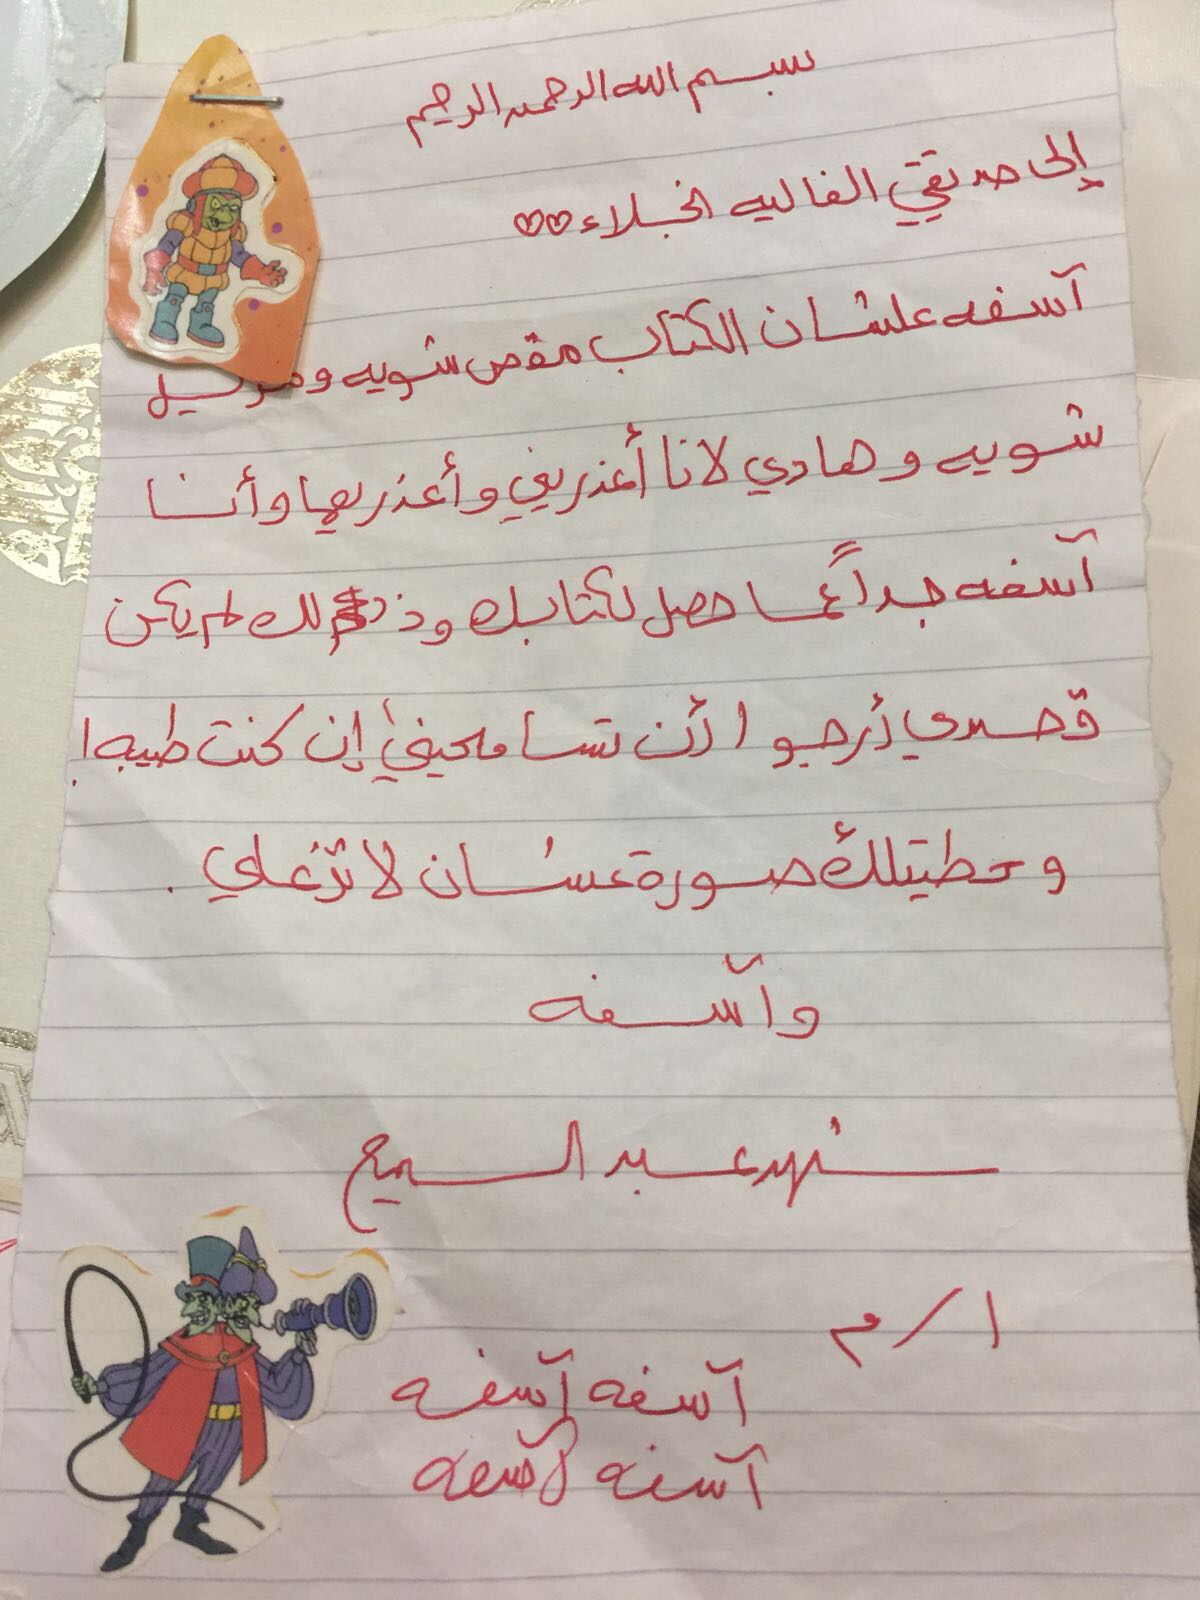 بسم الله الرحمن الرحيم
إلى صديقتي الغاليه الخبلاء
آسفه علشان الكتاب مقص شويه و
شويه وهادي لانا أعذريني وأعذريها وأنا
آسفه جداً عما حصل لكتابك وذ لك لم يكن
قصدي أرجوا أن تسامحيني إن كنت طيبه!
وحطيتلك صورة عشان لا تزعلي.
وآسفه
شهد عبد السميع
ا/م
آسفه آسفه
آسفه آسفه